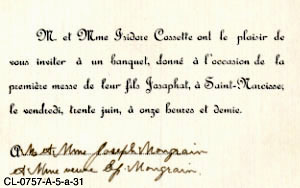 M. et Mme Isidore Cossette ont le plaisir de
vous inviter à un banquet, donné à l'occasion de la
première messe de leur fils Josaphat, à Saint-Narcisse,
le vendredi, trente juin, à onze heures et demie.
A M. et Mme Joseph Mongrain
et Mme veuve Mongrain.
CL-0757-A-5-a-31